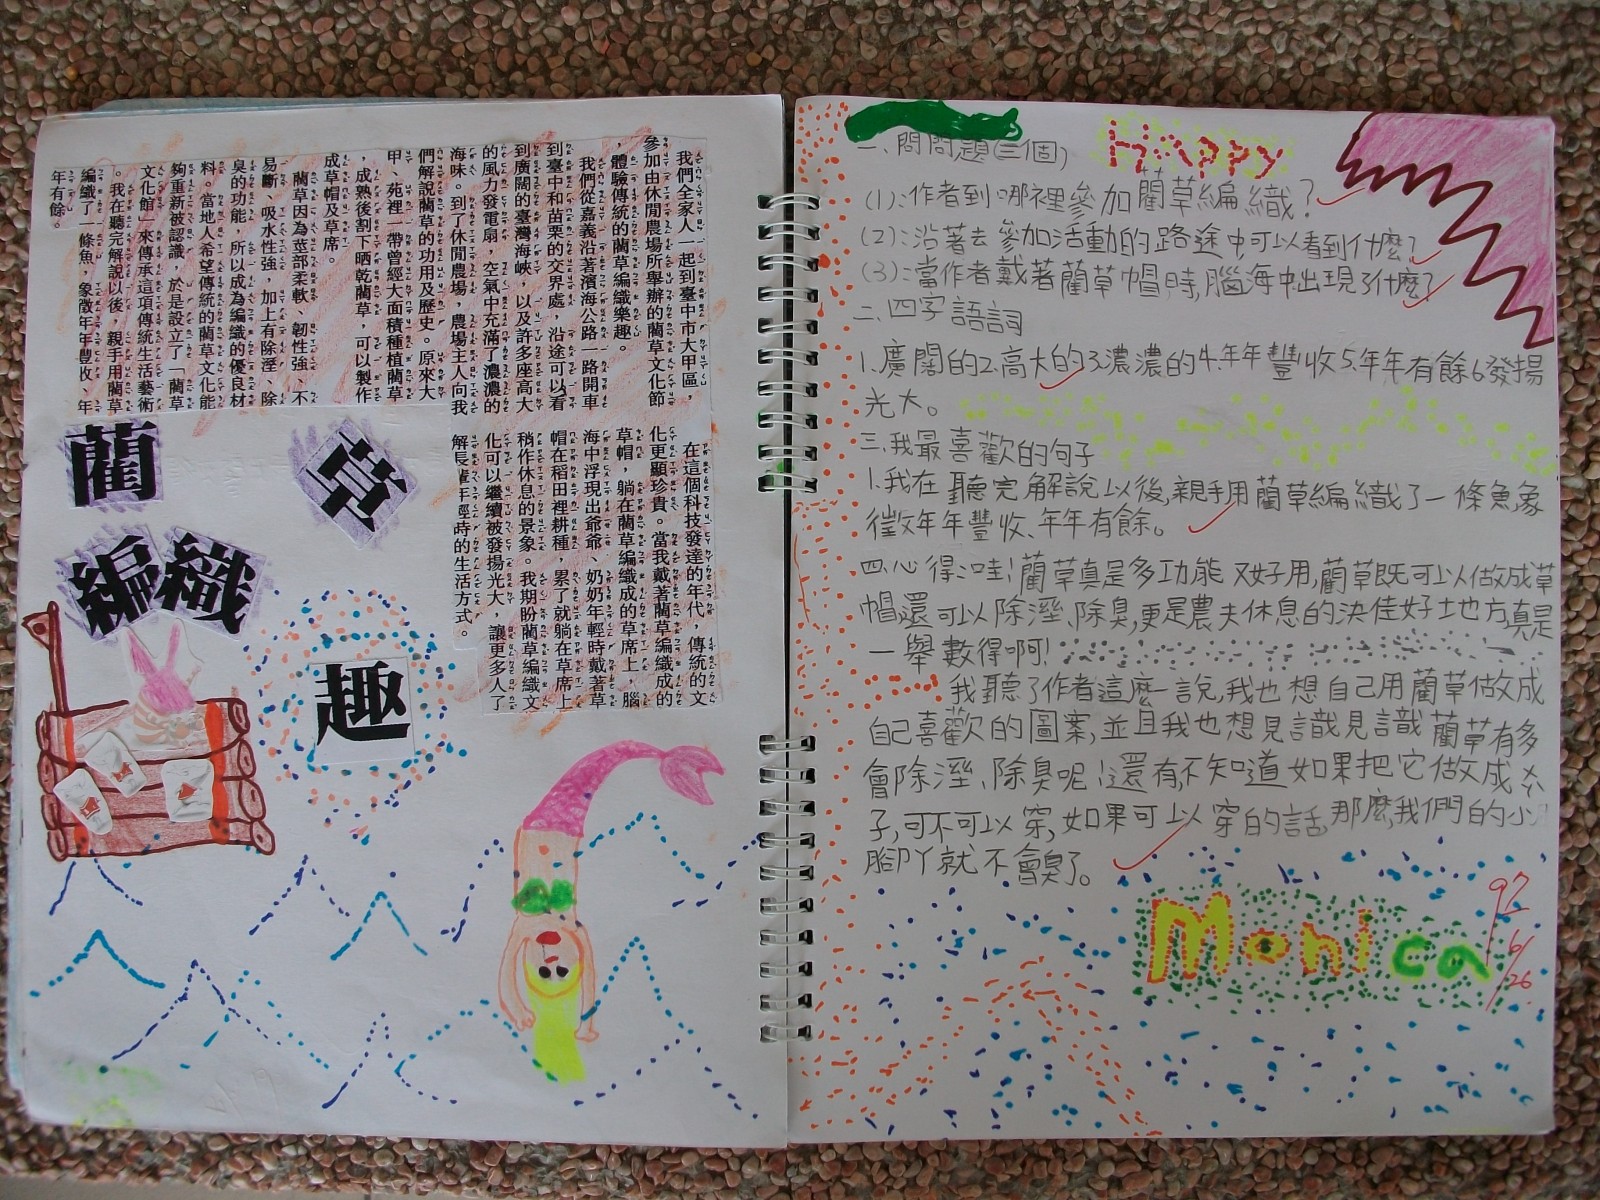 我們全家人一起到臺中市大甲區，
參加由休閒農場所舉辦的藺草文化節
，體驗傳統的藺草編織樂趣。
我們從嘉義沿著濱海公路一路開車
到臺中和苗栗的交界處，沿途可以看
到廣闊的臺灣海峽，以及許多座高大
的風力發電扇，空氣中充滿了濃濃的
海味。到了休閒農場，農場主人向我
們解說藺草的功用及歷史。原來大
甲、苑裡一帶曾經大面積種植藺草
，成熟後割下晒乾藺草，可以製作
成草帽及草席。
藺草因為莖部柔軟、韌性強、不
易斷、吸水性強，加上有除溼、除
臭的功能，所以成為編織的優良材
料。當地人希望傳統的藺草文化能
夠重新被認識，於是設立了「藺草
文化館」來傳承這項傳統生活藝術
。我在聽完解說以後，親手用藺草
編織了一條魚，象徵年年豐收、年
年有餘。
在這個科技發達的年代，傳統的文
化更顯珍貴。當我戴著藺草編織成的
草帽，躺在藺草編織成的草席上，腦
海中浮現出爺爺、奶奶年輕時戴著草
帽在稻田裡耕種，累了就躺在草席上
稍作休息的景象。我期盼藺草編織文
化可以繼續被發揚光大，讓更多人了
解長輩年輕時的生活方式。
藺草
編織
趣
Happy
一、問問題(三個)
(1):作者到哪裡參加藺草編織?
(2):沿著去參加活動的路途中可以看到什麼?
(3):當作者戴著藺草帽時,腦海中出現了什麼?
二、四字語詞
1.廣闊的2.高大的3.濃濃的4.年年豐收5.年年有餘6.發揚
光大。
三、我最喜歡的句子
1.我在聽完解說以後,親手用藺草編織了一條魚,象
徵年年豐收、年年有餘。
四、心得:哇!藺草真是多功能又好用,藺草既可以做成草
帽還可以除溼、除臭,更是農夫休息的決佳好土地方,真是
一舉數得啊!
我聽了作者這麼一說,我也想自己用藺草做成
自己喜歡的圖案,並且我也想見識見識藺草有多
會除溼、除臭呢!還有,不知道如果把它做成
子,可不可以穿,如果可以穿的話,那麼,我們的小
腳丫就不會臭了。
Monica
97
6/26